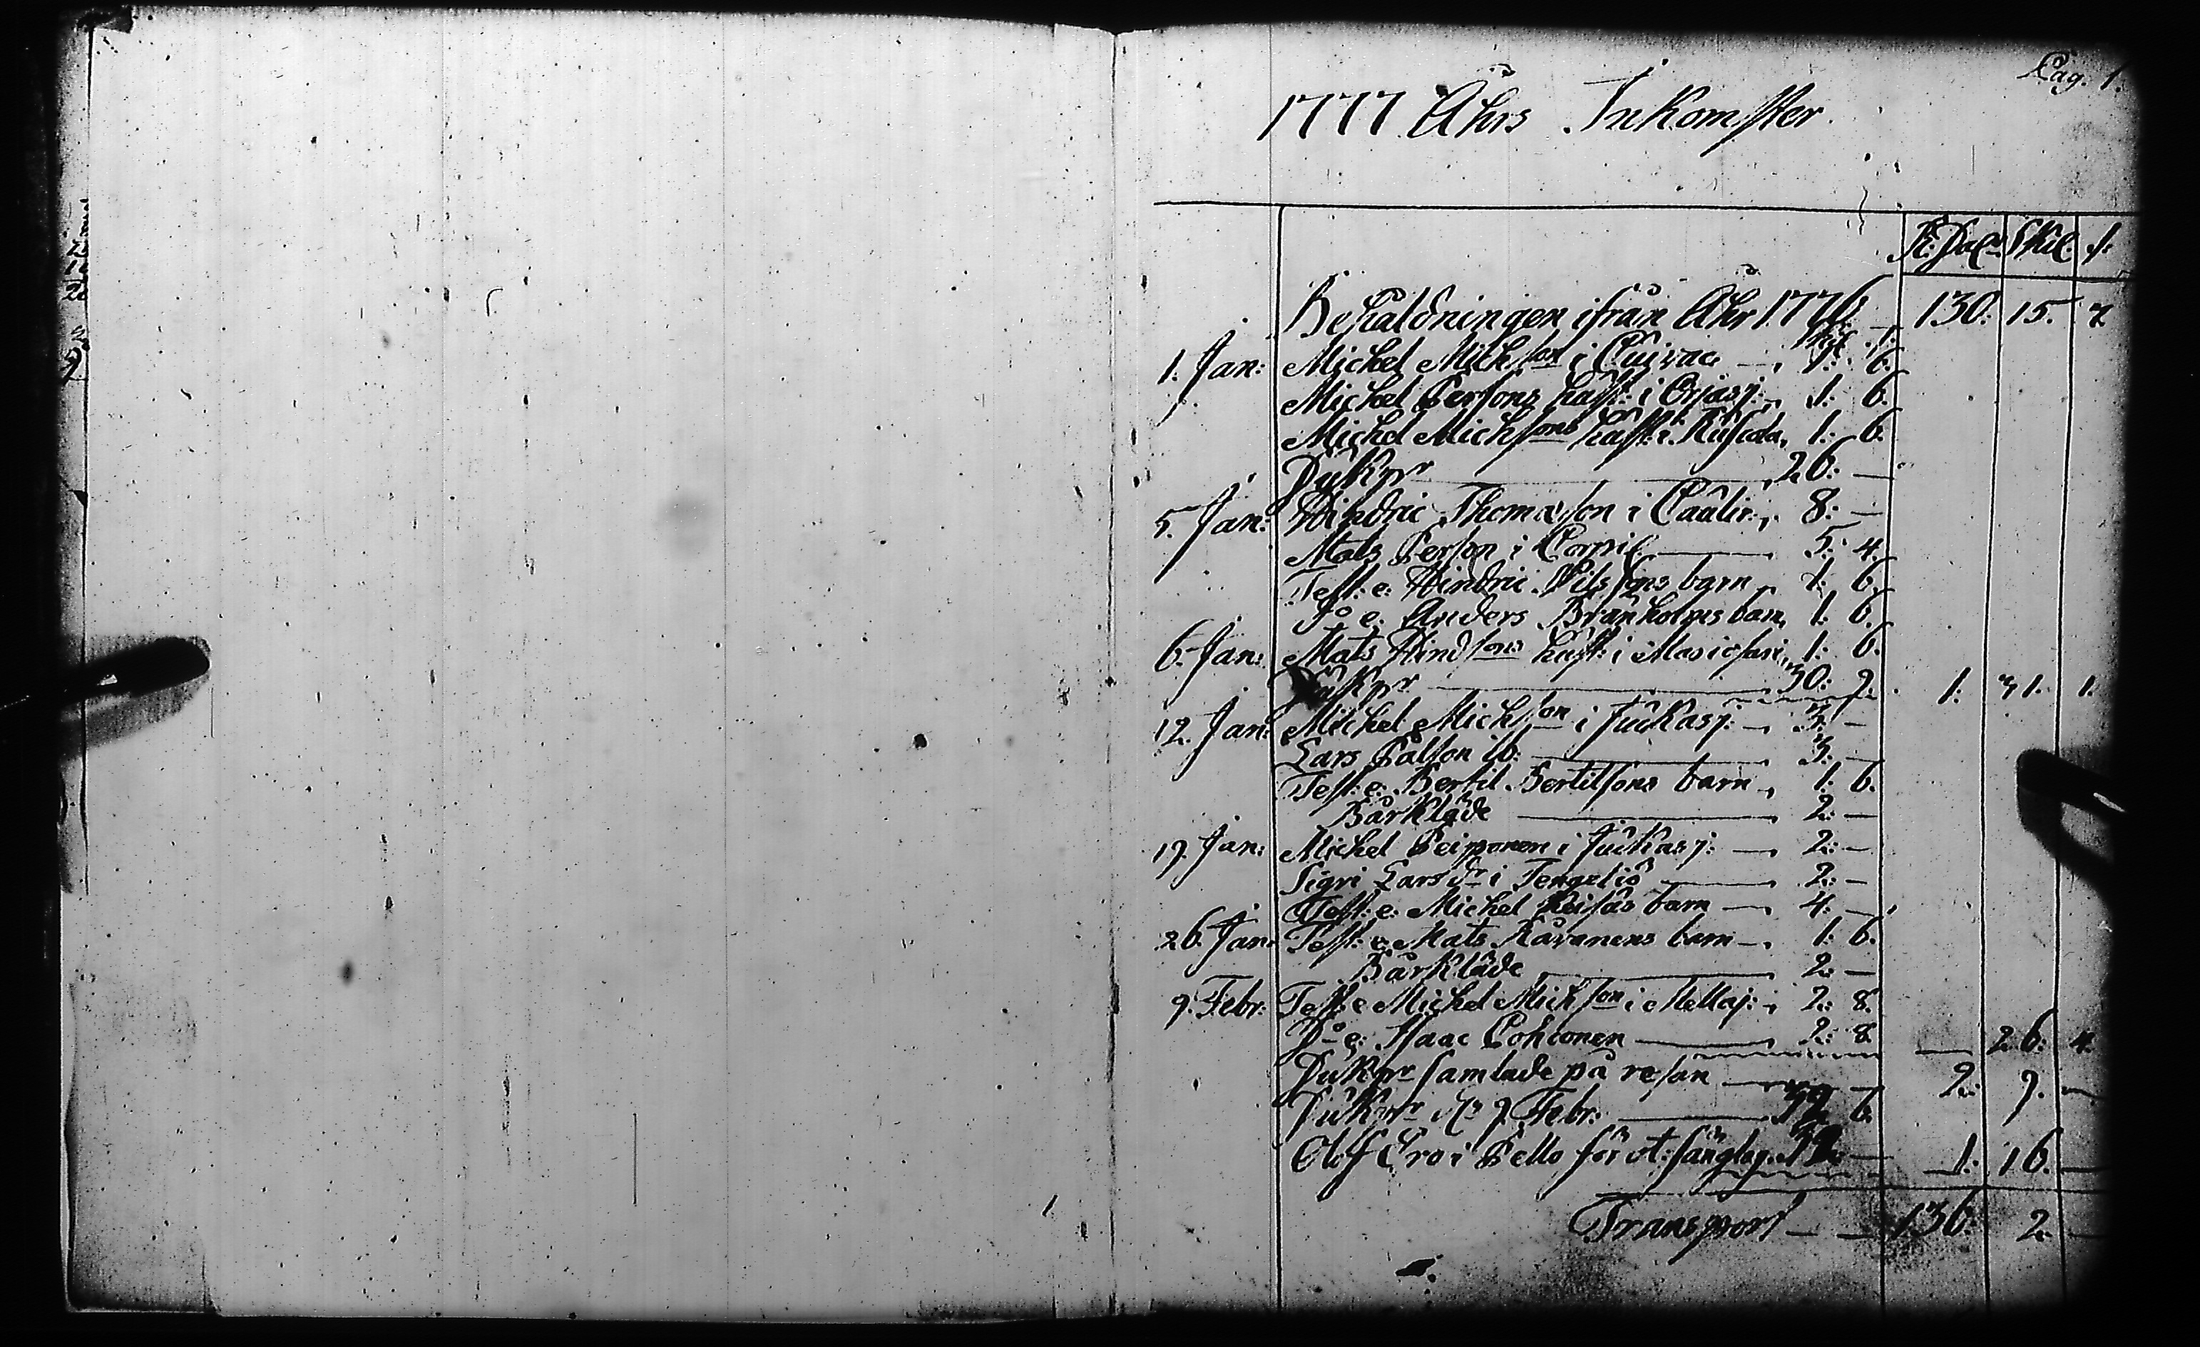 Pag. 1.
1777 Åhrs Inkomster.
R: Dalr Skil. 
Behåldningen ifrån Åhr 1776. — 130: 15. 7.
1. Jan: Michel Michson i Cuivac —, 6.
Michel Persons hust: i Orjasj: „ 1: 6.
Michel Michsons hust: i „ 1: 6.
Dukpr „ 26: —
5. Jan: Hindric Thomasson i „ 8: —
Mats Person i Corpil —, 5: 4.
Test: e: Hindric Nilssons barn „ 1: 6.
Do e: Anders Brünholms barn, 1: 6.
6. Jan: Mats Hindsons hust: i „ 1: 6.
Dukpr — 30: 9. 1: 31. 1.
12. Jan: Michel Michson i Juckasj: —, 3: —
Lars Palson ib: —, 3: —
Test: e: Bertil Bertilsons barn „ 1: 6.
Bårkläde —, 2: —
19. Jan: Michel Peiponen i Juckasj: —, 2: —
Sigri Larsdr i Tengeliö —, 2: —
Test: e: Michel barn —, 4: —
26. Jan: Test: e: Mats Ravanens barn —, 1: 6.
Bårkläde —, 2: —
9. Febr: Test: e Michel Michson i Mellaj: „ 2: 8.
Do e: Isaac Pohionen —, 2: 8. — 26: 4.
Dukpr samlade på resan — 2: 9. —
Dukpr 9 Febr: — 6.
Olof Ero i Pello för — 1: 16. —
Transport — 136: 2. —